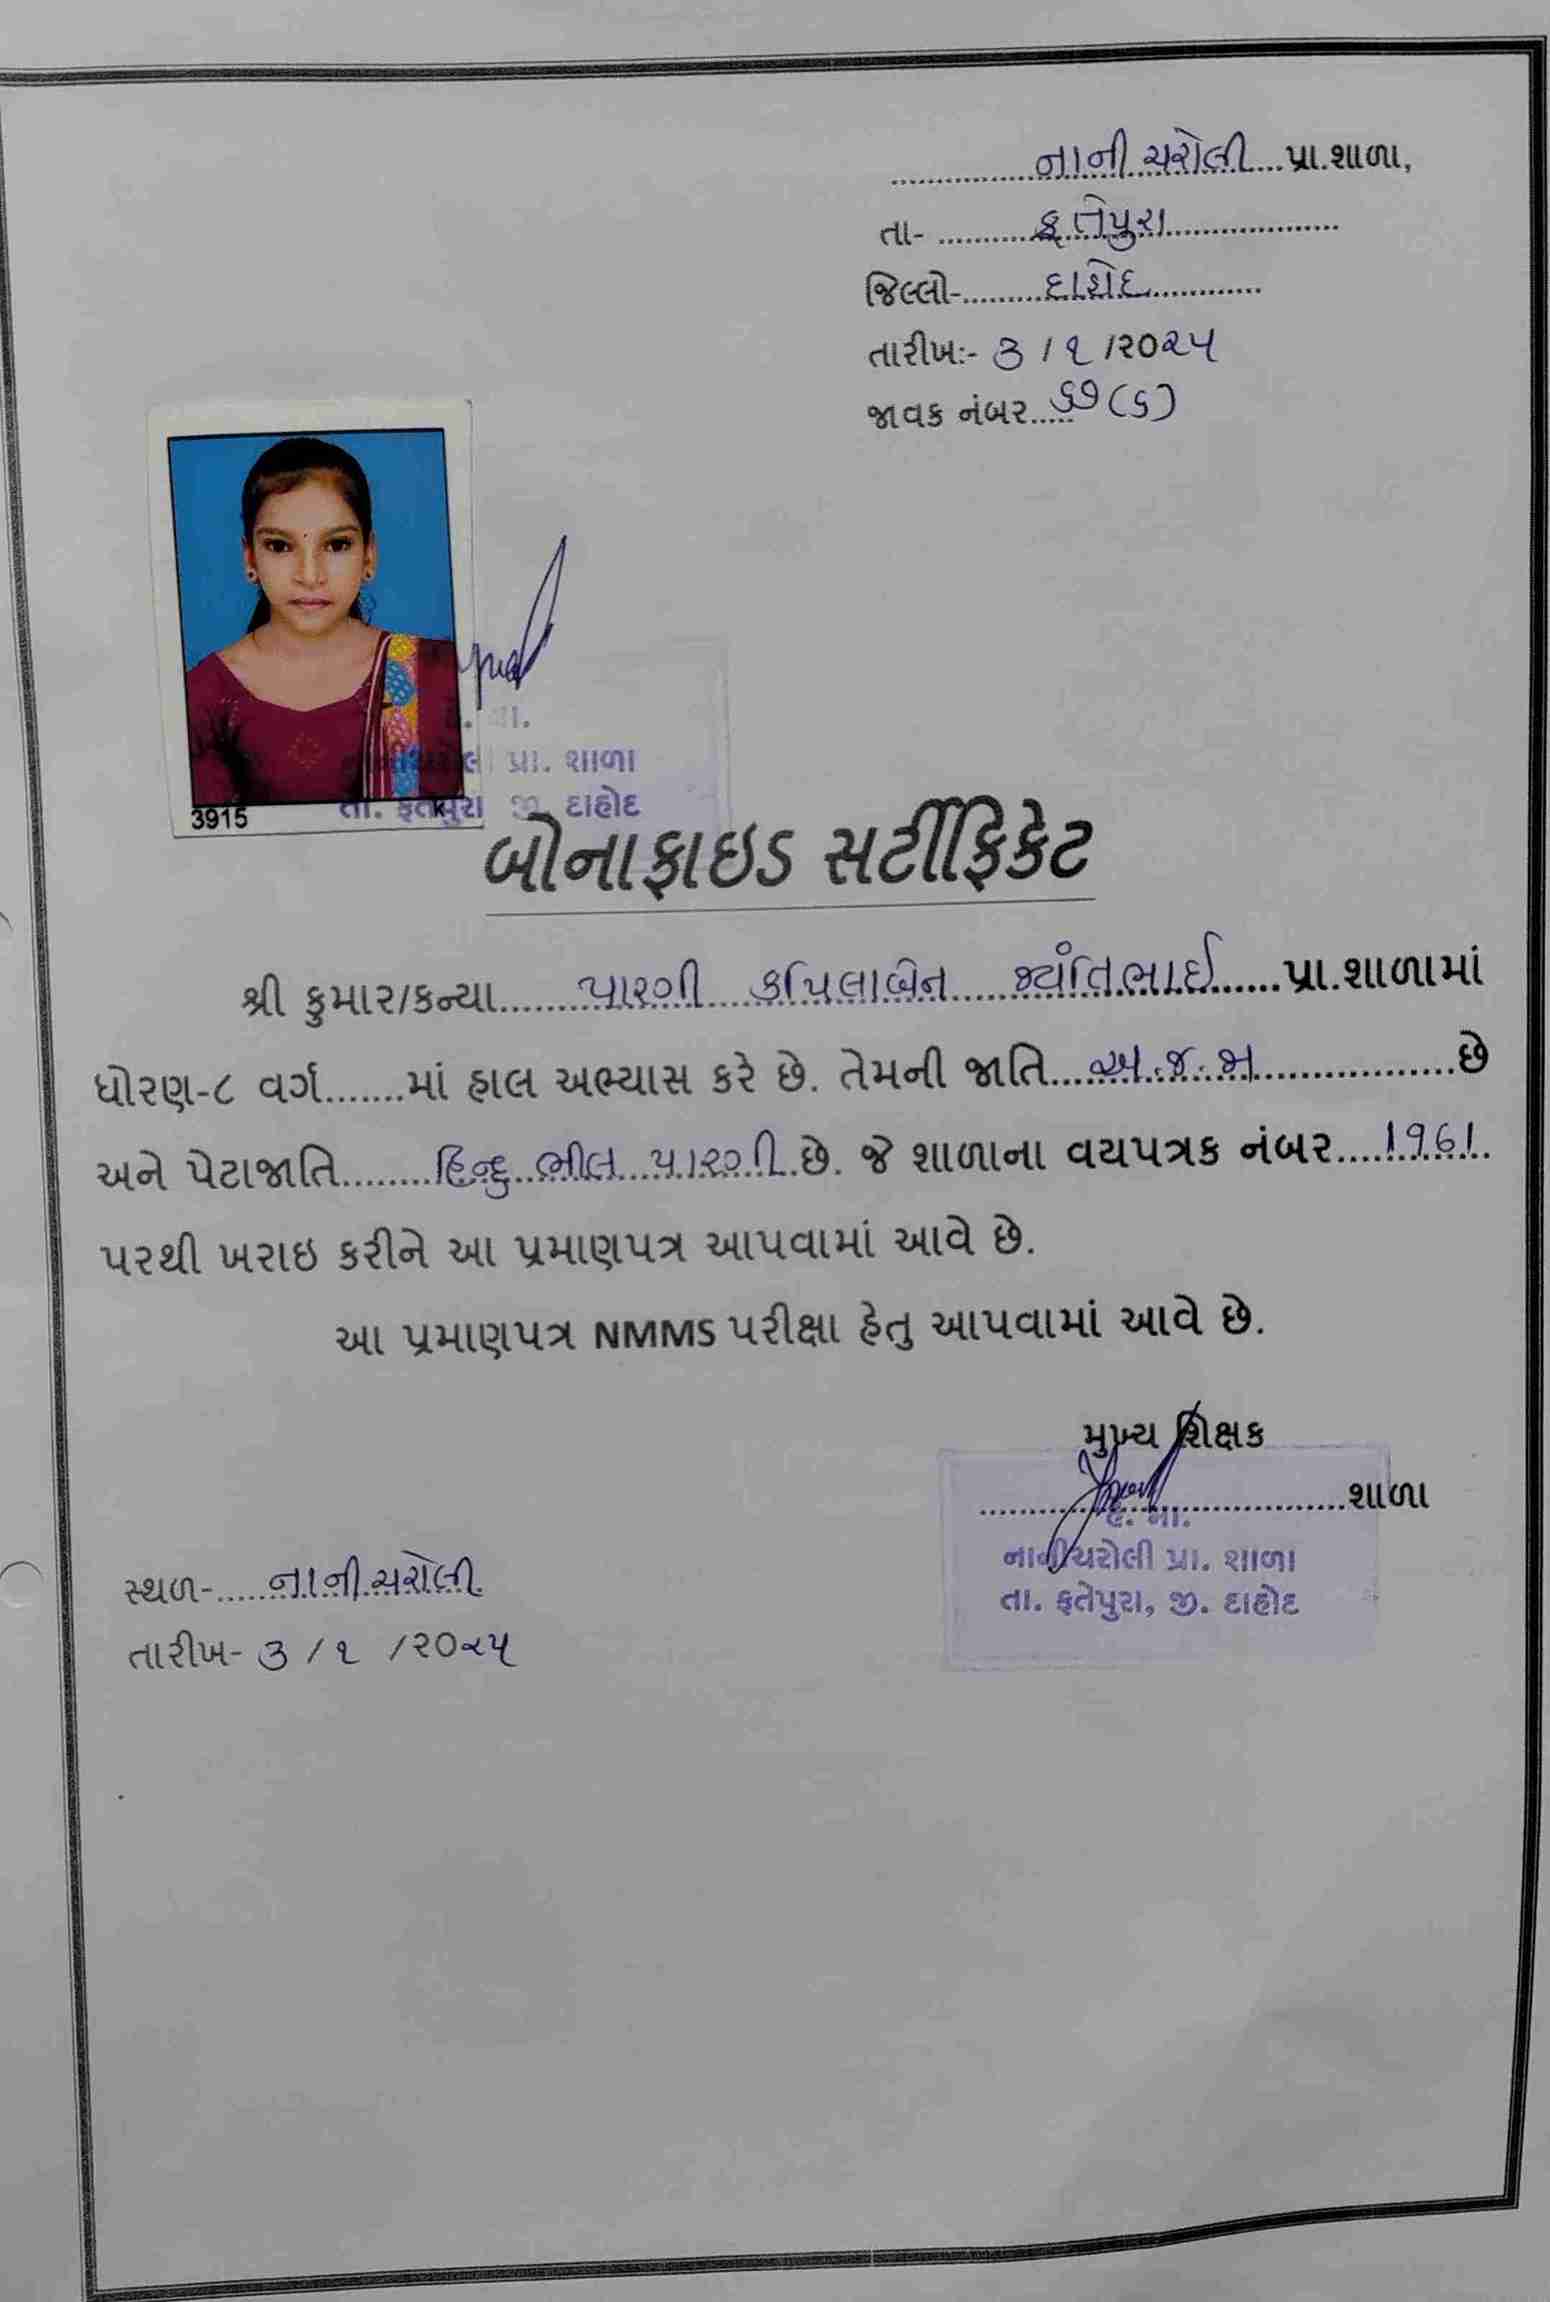 નાની ચરોલી પ્રા.શાળા,
તા- ફતેપુરા
જિલ્લો- દાહોદ
તારીખ:- ૩ / ૧ /૨૦૨૫
જાવક નંબર..... ૬૭ (૬)
પ્રા. શાળા
તા. ફતેપુરા જી. દાહોદ
3915
બોનાફાઇડ સર્ટીફિકેટ
શ્રી કુમાર/કન્યા..... પારગી કપિલાબેન જ્યંતિભાઈ.....પ્રા.શાળામાં
ધોરણ-૮ વર્ગ.......માં હાલ અભ્યાસ કરે છે. તેમની જાતિ... અ.જ.જા ...છે
અને પેટાજાતિ........ હિન્દુ ભીલ પારગી છે. જે શાળાના વયપત્રક નંબર.... 1961
પરથી ખરાઇ કરીને આ પ્રમાણપત્ર આપવામાં આવે છે.
આ પ્રમાણપત્ર NMMS પરીક્ષા હેતુ આપવામાં આવે છે.
મુખ્ય શિક્ષક
.....શાળા
નાનીચરોલી પ્રા. શાળા
તા. ફતેપુરા, જી. દાહોદ
સ્થળ-..... નાની ચરોલી
તારીખ- ૩ / ૧ /૨૦૨૫